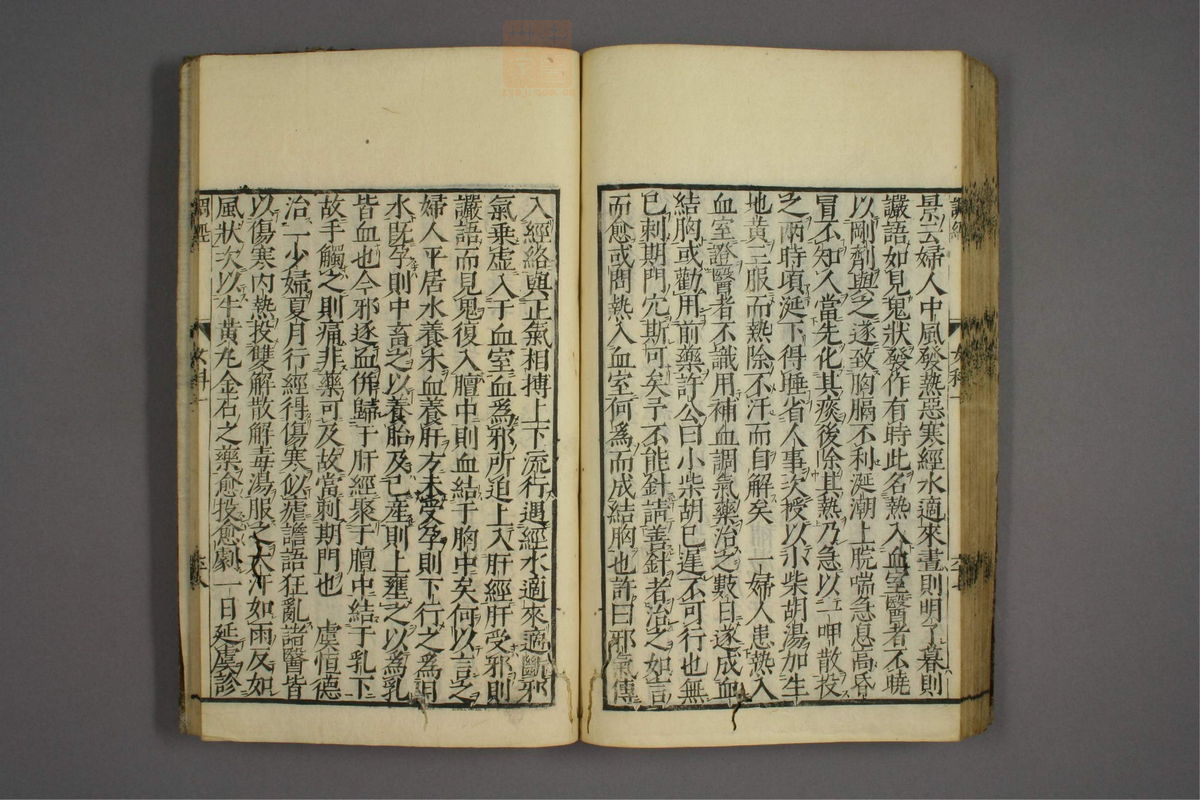 景云婦人中風發熱惡寒經水適來晝則明了暮則
讝語如見鬼狀發作有時此名熱入血室醫者不曉
以剛劑與之遂致胸膈不利涎潮上脘喘急息高昏
冒不知人當先化其痰後除其熱乃急以一呷散投
之兩時頃涎下得睡省人事次授以小柴胡湯加生
地黃三服而熱除不汗而自解矣 一婦人患熱入
血室證醫者不識用補血調氣藥治之數日遂成血
結胸或勸用前藥許公曰小柴胡已遲不可行也無
已刺期門穴斯可矣予不能針請善針者治之如言
而愈或問熱入血室何爲而成結胸也許曰邪氣傳
入經絡與正氣相搏上下流行遇經水適來適斷邪
氣乘虛入于血室血爲邪所迫上入肝經肝受邪則
讝語而見鬼復入膻中則血結于胸中矣何以言之
婦人平居水養木血養肝方未受孕則下行之爲月
水既孕則中畜之以養胎及已產則上壅之以爲乳
皆血也今邪逐血併歸于肝經聚于膻中結于乳下
故手觸之則痛非藥可及故當刺期門也 虞恒德
治一少婦夏月行經得傷寒似瘧譫語狂亂諸醫皆
以傷寒內熱投雙解散解毒湯服之大汗如雨反如
風狀次以牛黃丸金石之藥愈投愈劇一日延虞診
調經 女科一